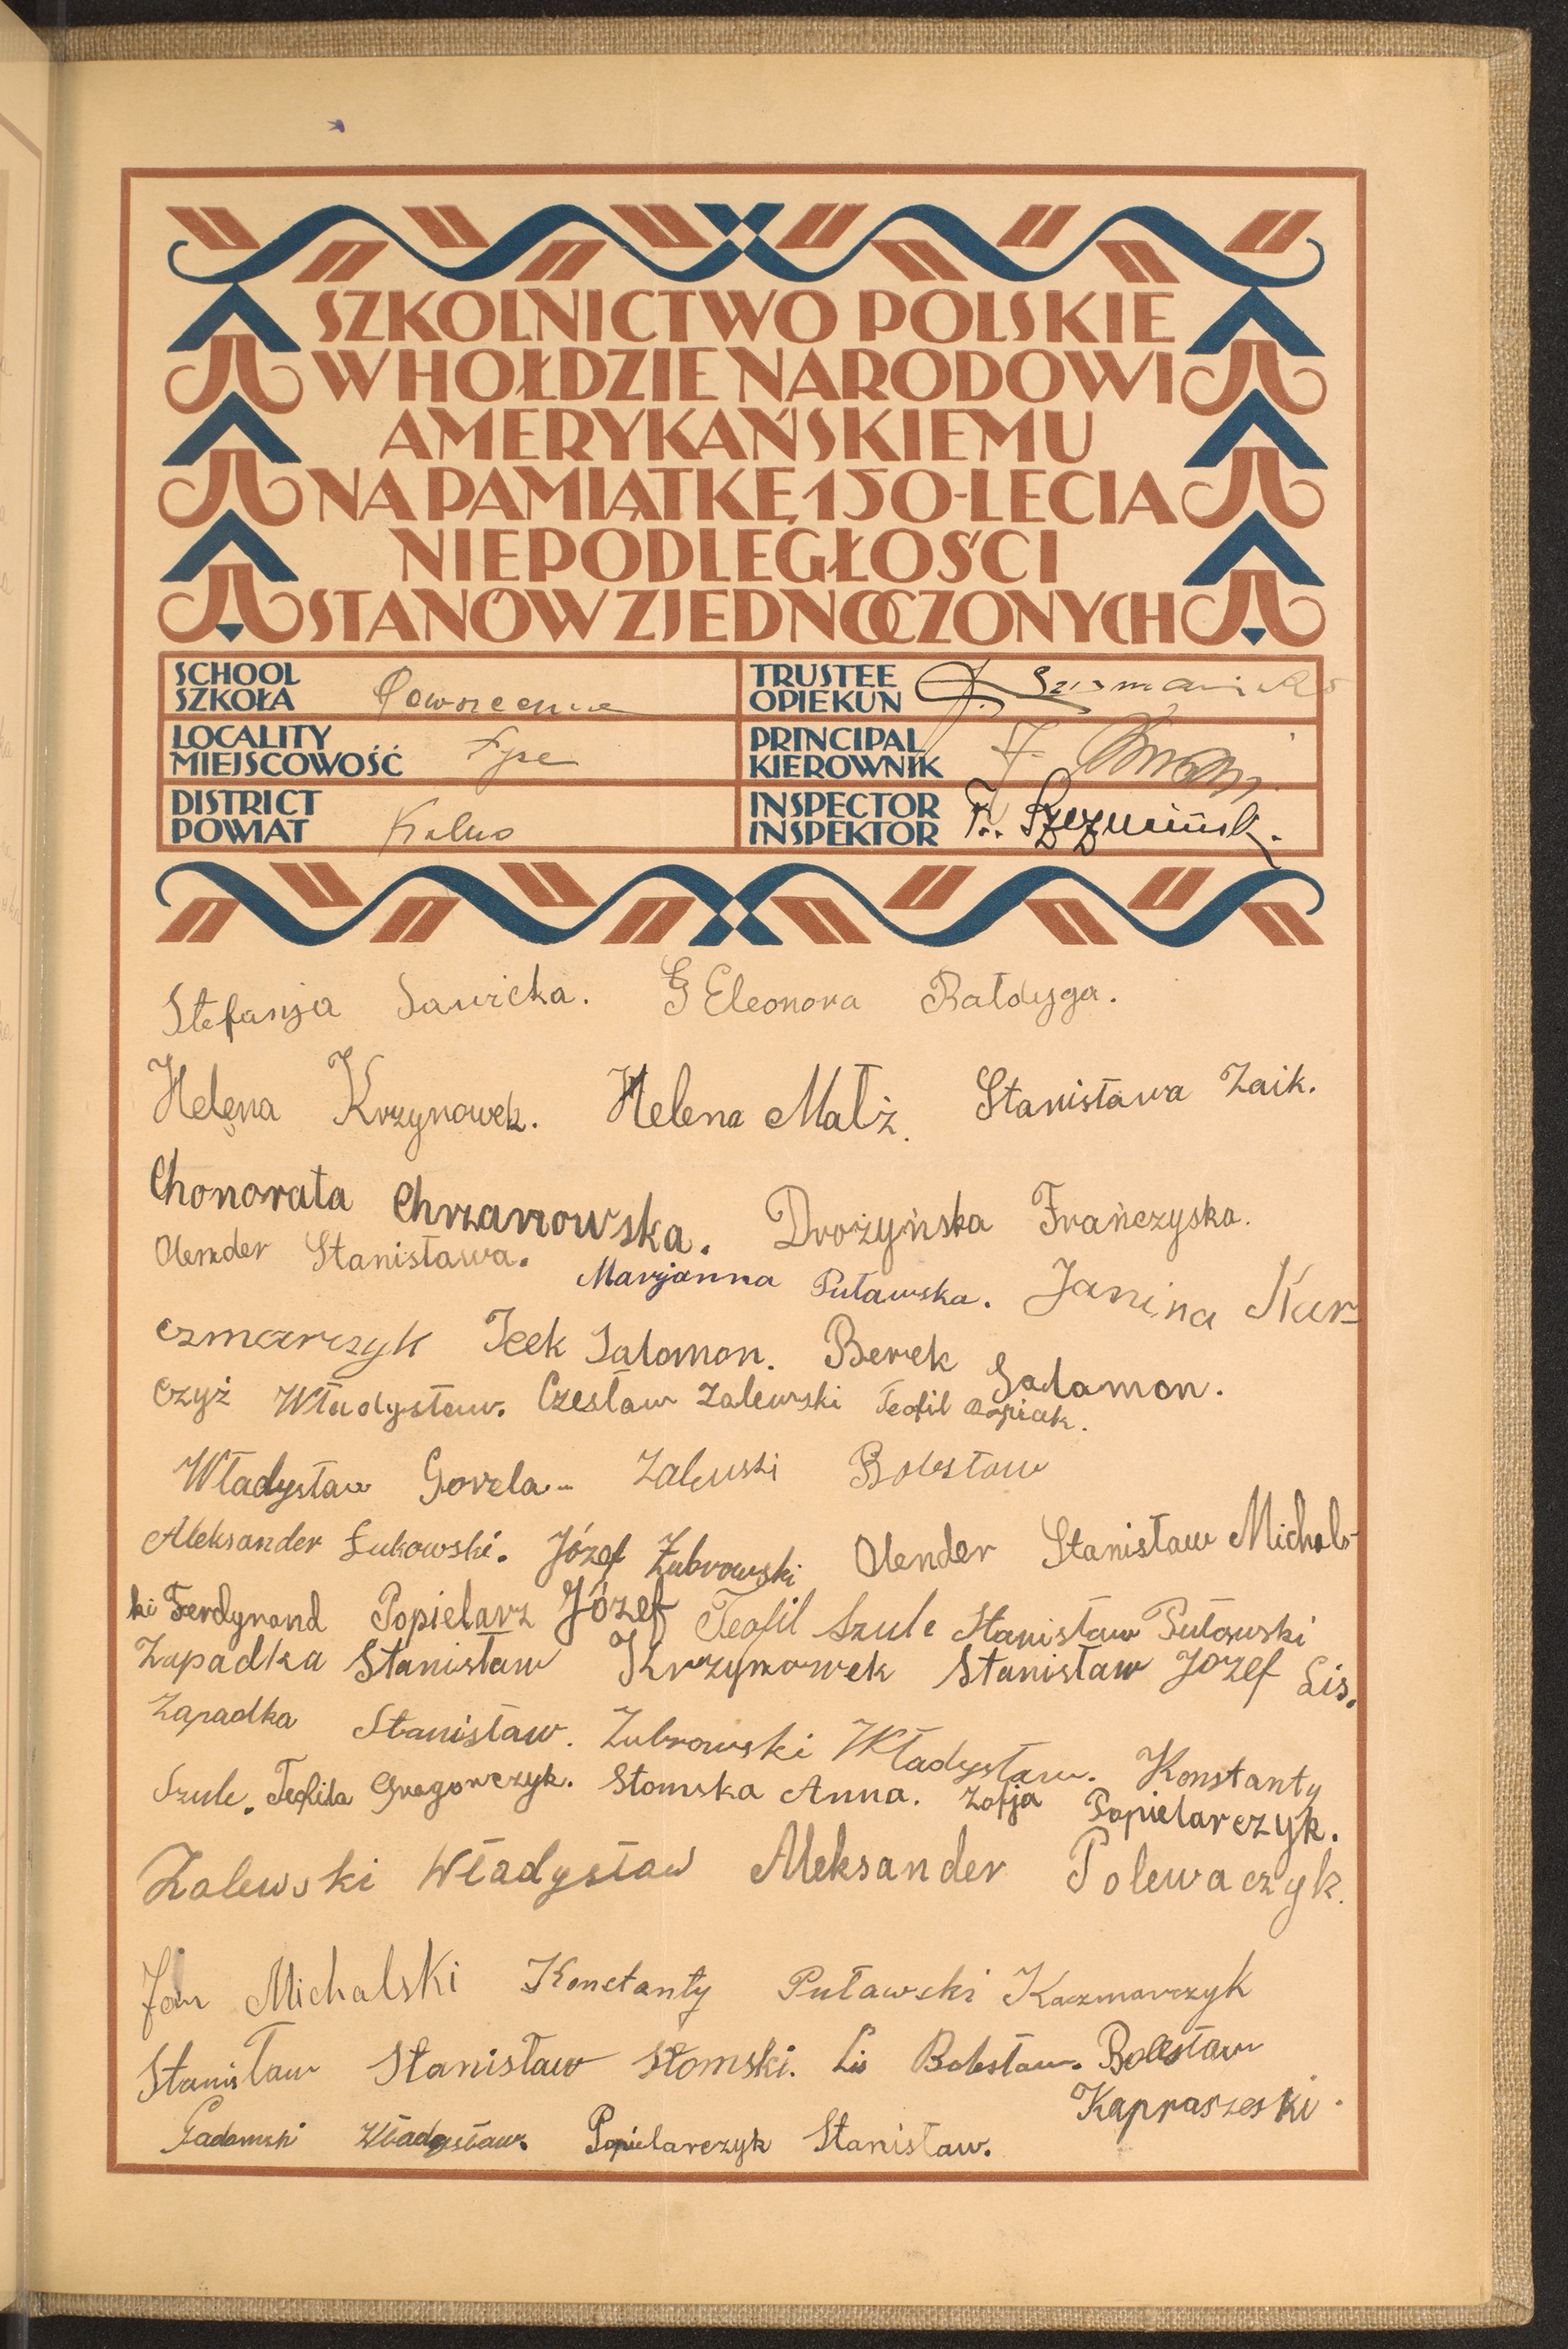 SZKOLNICTWO POLSKIE
W HOŁDZIE NARODOWI
AMERYKAŃSKIEMU
NA PAMIĄTKĘ 150-LECIA
NIEPODLEGŁOŚCI
STANÓW ZJEDNOCZONYCH
SCHOOL
SZKOŁA Powszechna
TRUSTEE
OPIEKUN
LOCALITY
MIEJSCOWOŚĆ
PRINCIPAL
KIEROWNIK
DISTRICT
POWIAT Kolno
INSPECTOR
INSPEKTOR
Stefanja Sawicka. Eleonora Bałdyga.
Helena Krzynowek. Helena Małż. Stanisława Zaik.
Chonorata Chrzanowska. Drożyńska Frańczyska.
Olender Stanisława. Marjanna Puławska. Janina Kar-
czmarczyk Icek Salomon. Berek Salamon.
Czyż Władysław. Czesław Zalewski Teofil
Władysław Gorela. Zalewski Bolesław
Aleksander Łukowski. Józef Zubrowski Olender Stanisław Michals-
ki Ferdynand Popielarz Józef Teofil Szulc Stanisław Puławski
Zapadka Stanisław Krzynowek Stanisław Józef Lis.
Zapadka Stanisław. Zubrowski Władysław. Konstanty
Szulc. Teofila Gregorczyk. Słomska Anna. Zofja Popielarczyk.
Zalewski Władysław Aleksander Polewaczyk.
Jan Michalski Konstanty Puławski Kaczmarczyk
Stanisław Stanisław Słomski. Lis Bolesław. Bolesław
Kapraszeski.
Gadomski Władysław. Popielarczyk Stanisław.